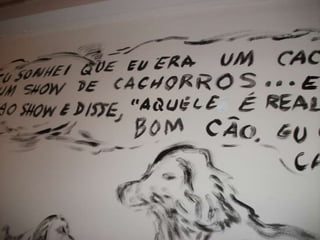 EU SONHEI QUE EU ERA UM CAC
UM SHOW DE CACHORROS...E
AO SHOW E DISSE, "AQUELE É REAL
BOM CÃO. EU
CA